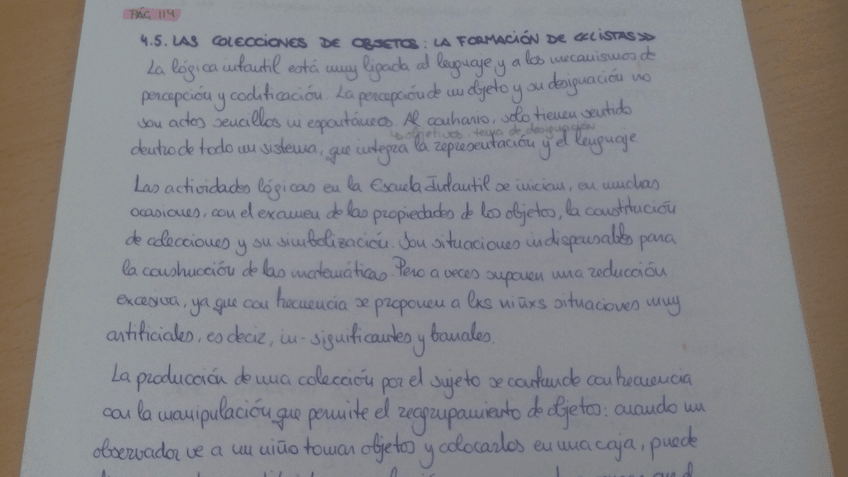 PÁG 114
4.5. LAS COLECCIONES DE OBJETOS: LA FORMACIÓN DE «LISTAS»
La lógica infantil está muy ligada al lenguaje y a los mecanismos de
percepción y codificación. La percepción de un objeto y su designación no
son actos sencillos ni espontáneos. Al contrario, solo tienen sentido
los objetivos: tema de designación
dentro de todo un sistema, que integra la representación y el lenguaje
Las actividades lógicas en la Escuela Infantil se inician, en muchas
ocasiones, con el examen de las propiedades de los objetos, la constitución
de colecciones y su simbolización. Son situaciones indispensables para
la construcción de las matemáticas. Pero a veces suponen una reducción
excesiva, ya que con frecuencia se proponen a lxs niñxs situaciones muy
artificiales, es decir, in-significantes y banales.
La producción de una colección por el sujeto se confunde con frecuencia
con la manipulación que permite el reagrupamiento de objetos: cuando un
observador ve a un niño tomar objetos y colocarlos en una caja, puede